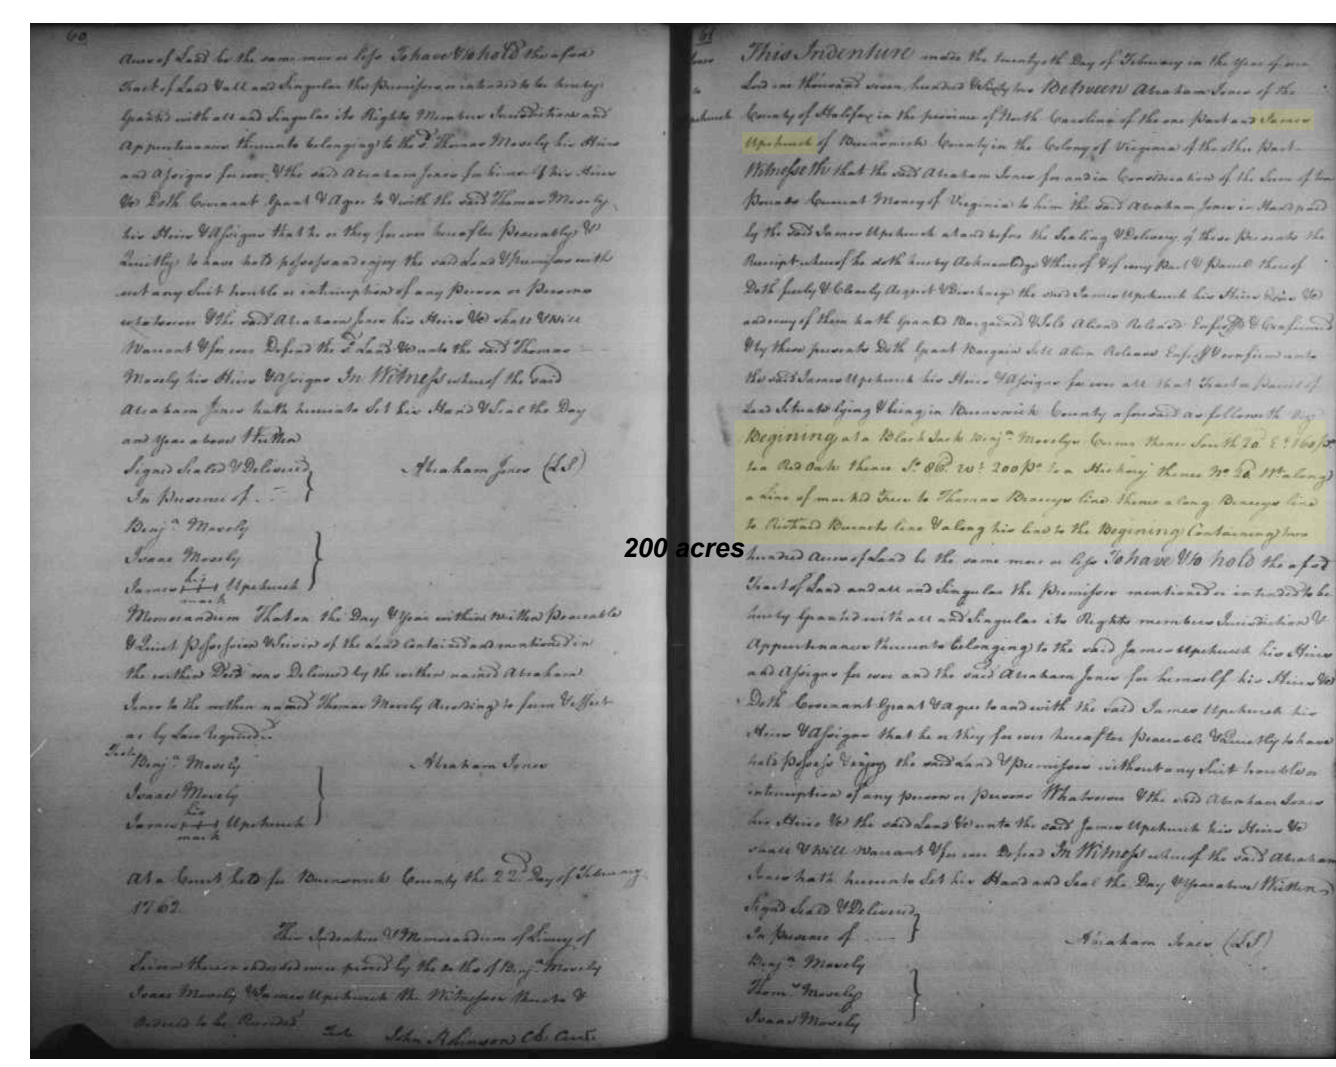 60
Acres of Land be the same more or less To have & to hold the afore
Tract of Land & all and Singular the Premisses intended to be hereby
Granted with all and Singular its Rights Members Jurisdictions and
Appurtenances thereunto belonging to the sd. Thomas Mosely his Heirs
and Assigns for ever & the said Abraham Jones for himself his Heirs
&c Doth Covenant Grant & Agree to & with the said Thomas Mosely
his Heirs & Assigns that he or they for ever hereafter Peaceably &
Quietly to have hold possess and enjoy the said Land & Premisses with
out any Suit trouble or interruption of any Person or Persons
whatsoever & the said Abraham Jones his Heirs &c shall & Will
Warrant & for ever Defend the sd. Land &c unto the said Thomas
Mosely his Heirs & Assigns In Witness whereof the said
Abraham Jones hath hereunto Set his Hand & Seal the Day
and Year above Written
Signed Sealed & Delivered
In Presence of
Abraham Jones (LS)
Benja. Mosely
Isaac Mosely
James his mark Upchurch
Memorandum That on the Day & Year within written Peaceable
& Quiet Possession & Seisin of the Land contained and mentioned in
the within Deed was Delivered by the within named Abraham
Jones to the within named Thomas Mosely According to form & effect
as by Law Required
Teste
Benja. Mosely
Abraham Jones
Isaac Mosely
James his mark Upchurch
At a Court held for Brunswick County the 22d Day of February
1762.
This Indenture & Memorandum of Livery of
Seisin thereon endorsed were proved by the oaths of Benja. Mosely
Isaac Mosely & James Upchurch the Witnesses thereto &
Ordered to be Recorded
Teste John Robinson Cl. Curt.
200 acres
61
Jones
to
Upchurch
This Indenture made the twentyeth Day of February in the Year of our
Lord one thousand seven hundred & sixty two Between Abraham Jones of the
County of Halifax in the province of North Carolina of the one Part and James
Upchurch of Brunswick County in the Colony of Virginia of the other Part
Witnesseth that the said Abraham Jones for and in Consideration of the Sum of ten
Pounds Current Money of Virginia to him the said Abraham Jones in Hand paid
by the said James Upchurch at and before the Sealing & Delivery of these Presents the
Receipt whereof he doth hereby Acknowledge & thereof & of every Part & Parcel thereof
Doth freely & Clearly Acquit & Discharge the said James Upchurch his Heirs &c
and every of them hath Granted Bargained & Sold Aliend Releasd Enfeoffd & Confirmed
& by these presents Doth Grant Bargain Sell Alien Release Enfeoff & confirm unto
the said James Upchurch his Heirs & Assigns for ever all that Tract or Parcel of
Land Situate lying & being in Brunswick County aforesaid as followeth Viz
Begining at a Black Jack Benja. Moselys Corner thence South 20 Et. 160 po.
to a Red Oak thence So. 86 Wt. 200 po. to a Hickory thence No. 20 Wt. along
a Line of marked Trees to Thomas Braceys line thence along Braceys line
to Richard Burnets line & along his line to the Begining Containing two
hundred Acres of Land be the same more or less To have & to hold the afsd
Tract of Land and all and Singular the Premisses mentioned or intended to be
hereby Granted with all and Singular its Rights members Jurisdiction &
Appurtenances thereunto belonging to the said James Upchurch his Heirs
and Assigns for ever and the said Abraham Jones for himself his Heirs &c
Doth Covenant Grant & Agree to and with the said James Upchurch his
Heirs & Assigns that he or they for ever hereafter peaceable & Quietly to have
hold Possess & enjoy the said Land & Premisses without any Suit trouble or
interruption of any person or Persons Whatsoever & the said Abraham Jones
his Heirs &c the said Land &c unto the said James Upchurch his Heirs &c
shall & Will Warrant & for ever Defend In Witness whereof the said Abraham
Jones hath hereunto Set his Hand and Seal the Day & Year above Written
Signd Seald & Delivered
In Presence of
Abraham Jones (LS)
Benja. Mosely
Thoms. Mosely
Isaac Mosely